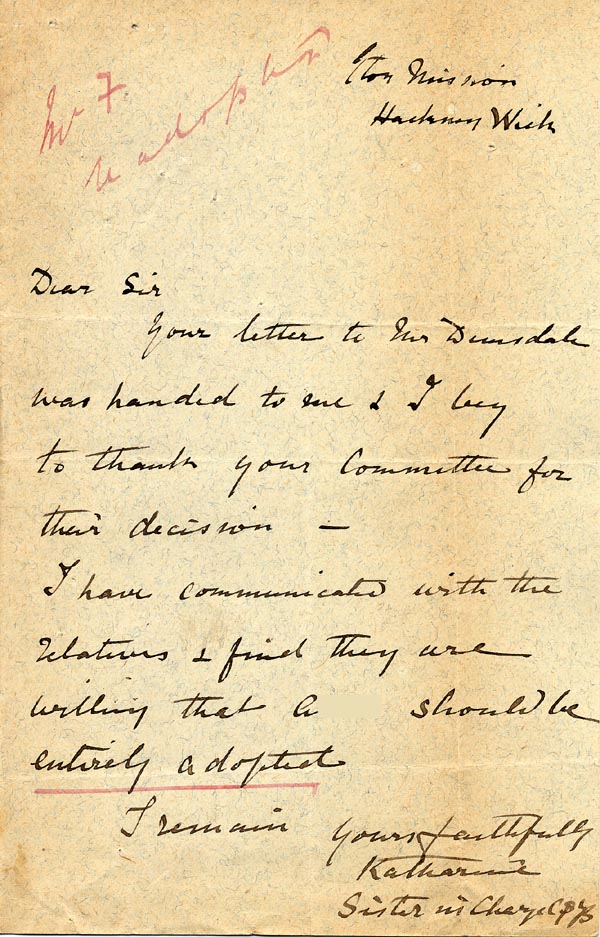 Mr F.
to adoption
Eton Mission
Hackney Wick
Dear Sir
Your letter to Mr Dimsdale
was handed to me & I beg
to thank your Committee for
their decision —
I have communicated with the
relatives & find they are
willing that A should be
entirely adopted
I remain Yours faithfully
Katharine
Sister in Charge